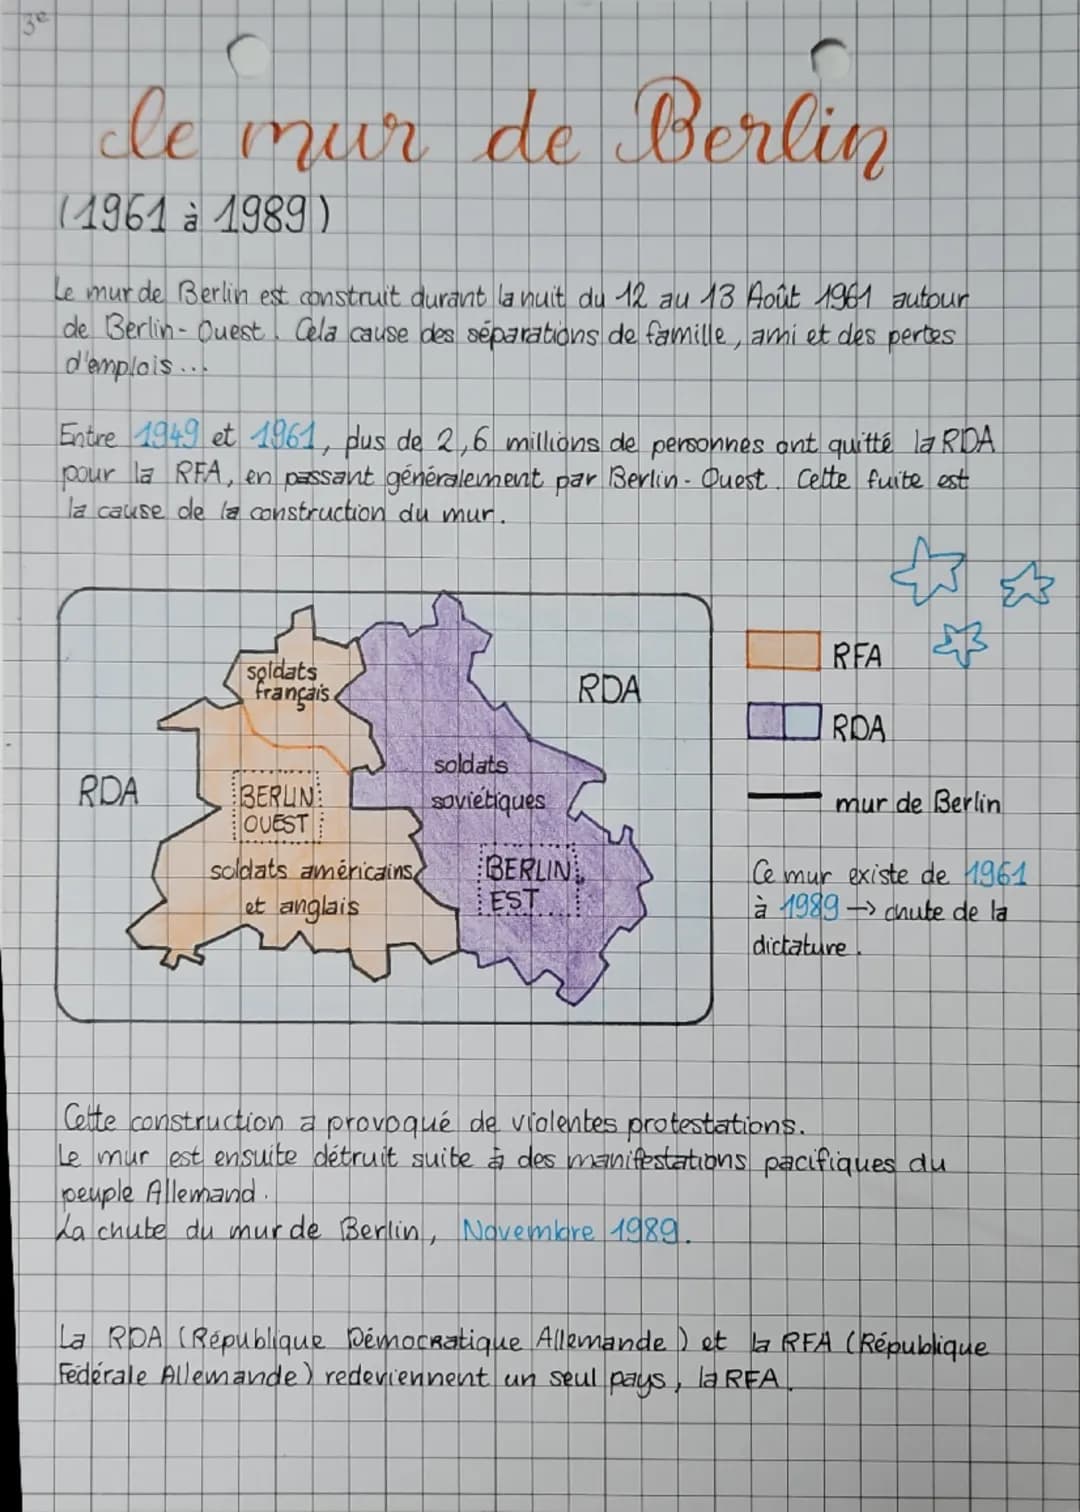 3e
Le mur de Berlin
(1961 à 1989)
Le mur de Berlin est construit durant la nuit du 12 au 13 Août 1961 autour
de Berlin-Ouest. Cela cause des séparations de famille, ami et des pertes
d'emplois...
Entre 1949 et 1961, plus de 2,6 millions de personnes ont quitté la RDA
pour la RFA, en passant généralement par Berlin-Ouest. Cette fuite est
la cause de la construction du mur.
soldats
français
RDA
RFA
RDA
soldats
soviétiques
RDA
BERLIN
OUEST
mur de Berlin
soldats américains
et anglais
BERLIN
EST
Ce mur existe de 1961
à 1989 → chute de la
dictature.
Cette construction a provoqué de violentes protestations.
Le mur est ensuite détruit suite à des manifestations pacifiques du
peuple Allemand.
La chute du mur de Berlin, Novembre 1989.
La RDA (République Démocratique Allemande) et la RFA (République
Fédérale Allemande) redeviennent un seul pays, la RFA.